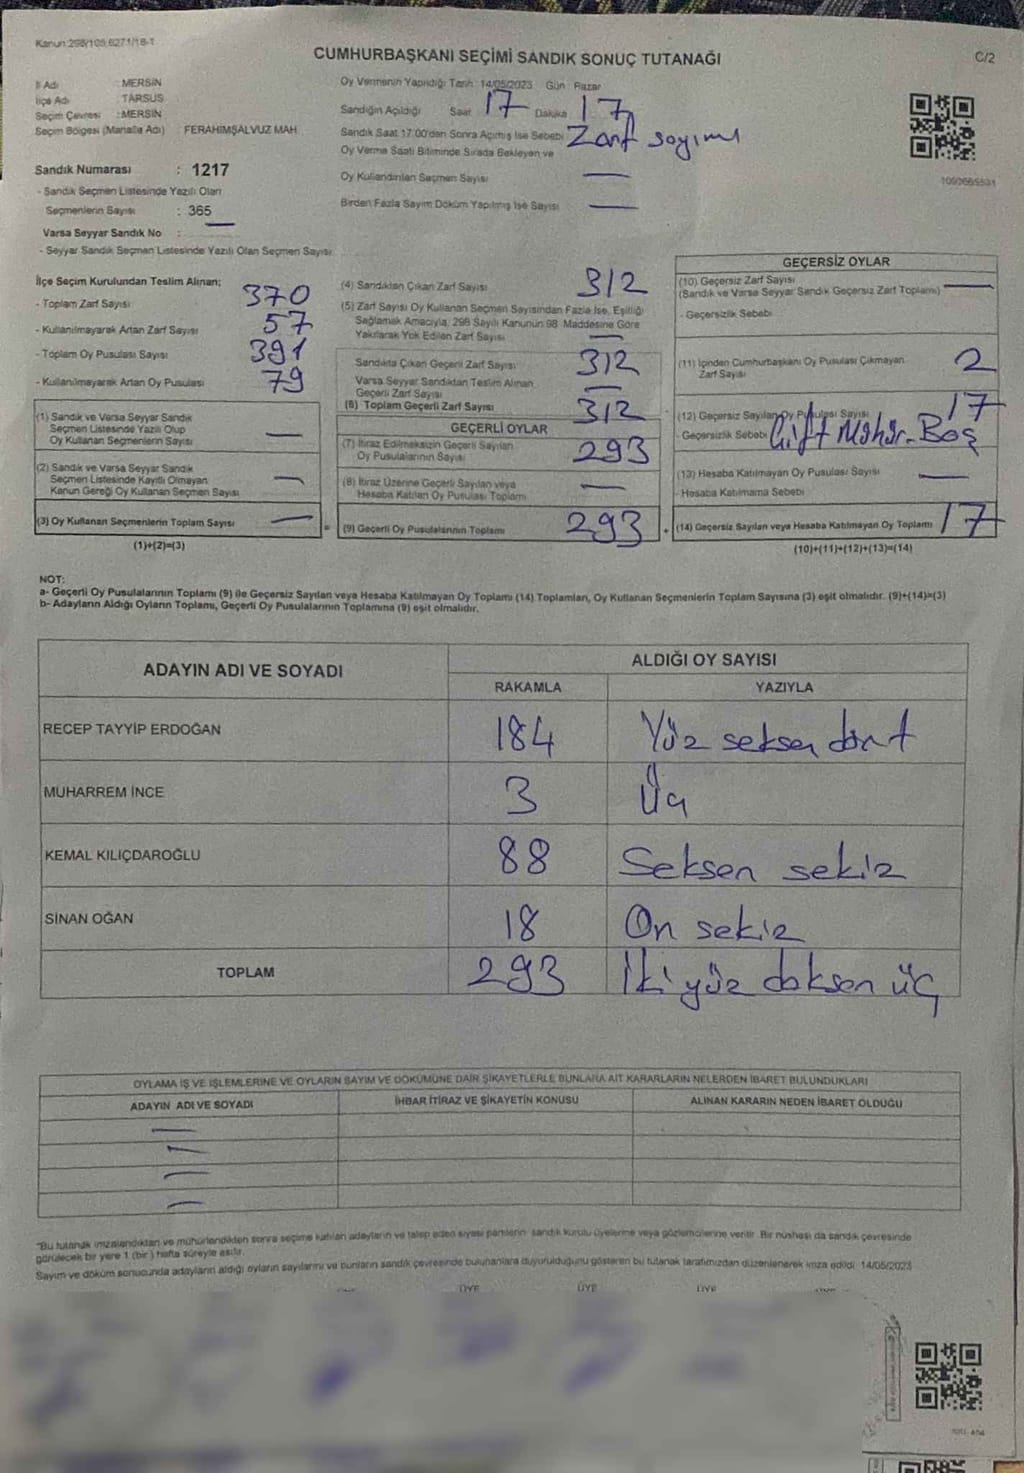 Kanun:298/105;6271/18-1
CUMHURBAŞKANI SEÇİMİ SANDIK SONUÇ TUTANAĞI
C/2
İl Adı : MERSİN
İlçe Adı : TARSUS
Seçim Çevresi : MERSİN
Seçim Bölgesi (Mahalle Adı) : FERAHİMŞALVUZ MAH.
Sandık Numarası : 1217
- Sandık Seçmen Listesinde Yazılı Olan
Seçmenlerin Sayısı : 365
Varsa Seyyar Sandık No : —
- Seyyar Sandık Seçmen Listesinde Yazılı Olan Seçmen Sayısı
Oy Vermenin Yapıldığı Tarih: 14/05/2023 Gün : Pazar
Sandığın Açıldığı Saat 17 Dakika 17
Sandık Saat 17:00'den Sonra Açılmış İse Sebebi Zarf sayımı
Oy Verme Saati Bitiminde Sırada Bekleyen ve
Oy Kullandırılan Seçmen Sayısı —
Birden Fazla Sayım Döküm Yapılmış İse Sayısı —
İlçe Seçim Kurulundan Teslim Alınan;
- Toplam Zarf Sayısı 370
- Kullanılmayarak Artan Zarf Sayısı 57
- Toplam Oy Pusulası Sayısı 391
- Kullanılmayarak Artan Oy Pusulası 79
(1) Sandık ve Varsa Seyyar Sandık
Seçmen Listesinde Yazılı Olup
Oy Kullanan Seçmenlerin Sayısı —
(2) Sandık ve Varsa Seyyar Sandık
Seçmen Listesinde Kayıtlı Olmayan
Kanun Gereği Oy Kullanan Seçmen Sayısı —
(3) Oy Kullanan Seçmenlerin Toplam Sayısı —
(1)+(2)=(3)
(4) Sandıktan Çıkan Zarf Sayısı 312
(5) Zarf Sayısı Oy Kullanan Seçmen Sayısından Fazla İse, Eşitliği
Sağlamak Amacıyla, 298 Sayılı Kanunun 98. Maddesine Göre
Yakılarak Yok Edilen Zarf Sayısı —
Sandıkta Çıkan Geçerli Zarf Sayısı 312
Varsa Seyyar Sandıktan Teslim Alınan
Geçerli Zarf Sayısı —
(6) Toplam Geçerli Zarf Sayısı 312
GEÇERLİ OYLAR
(7) İtiraz Edilmeksizin Geçerli Sayılan
Oy Pusulalarının Sayısı 293
(8) İtiraz Üzerine Geçerli Sayılan veya
Hesaba Katılan Oy Pusulası Toplamı —
= (9) Geçerli Oy Pusulalarının Toplamı 293
GEÇERSİZ OYLAR
(10) Geçersiz Zarf Sayısı —
(Sandık ve Varsa Seyyar Sandık Geçersiz Zarf Toplamı)
- Geçersizlik Sebebi
(11) İçinden Cumhurbaşkanı Oy Pusulası Çıkmayan
Zarf Sayısı 2
(12) Geçersiz Sayılan Oy Pusulası Sayısı 17
- Geçersizlik Sebebi Çift Mühür. Boş
(13) Hesaba Katılmayan Oy Pusulası Sayısı —
- Hesaba Katılmama Sebebi
+ (14) Geçersiz Sayılan veya Hesaba Katılmayan Oy Toplamı 17
(10)+(11)+(12)+(13)=(14)
NOT:
a- Geçerli Oy Pusulalarının Toplamı (9) ile Geçersiz Sayılan veya Hesaba Katılmayan Oy Toplamı (14) Toplamları, Oy Kullanan Seçmenlerin Toplam Sayısına (3) eşit olmalıdır. (9)+(14)=(3)
b- Adayların Aldığı Oyların Toplamı, Geçerli Oy Pusulalarının Toplamına (9) eşit olmalıdır.
ADAYIN ADI VE SOYADI
ALDIĞI OY SAYISI
RAKAMLA YAZIYLA
RECEP TAYYİP ERDOĞAN 184 Yüz seksen dört
MUHARREM İNCE 3 Üç
KEMAL KILIÇDAROĞLU 88 Seksen sekiz
SİNAN OĞAN 18 On sekiz
TOPLAM 293 İki yüz doksan üç
OYLAMA İŞ VE İŞLEMLERİNE VE OYLARIN SAYIM VE DÖKÜMÜNE DAİR ŞİKAYETLERLE BUNLARA AİT KARARLARIN NELERDEN İBARET BULUNDUKLARI
ADAYIN ADI VE SOYADI İHBAR İTİRAZ VE ŞİKAYETİN KONUSU ALINAN KARARIN NEDEN İBARET OLDUĞU
"Bu tutanak imzalandıktan ve mühürlendikten sonra seçime katılan adayların ve talep eden siyasi partilerin sandık kurulu üyelerine veya gözlemcilerine verilir. Bir nüshası da sandık çevresinde
görülecek bir yere 1 (bir) hafta süreyle asılır.
Sayım ve döküm sonucunda adayların aldığı oyların sayılarını ve bunların sandık çevresinde bulunanlara duyurulduğunu gösteren bu tutanak tarafımızdan düzenlenerek imza edildi. 14/05/2023
ÜYE ÜYE ÜYE